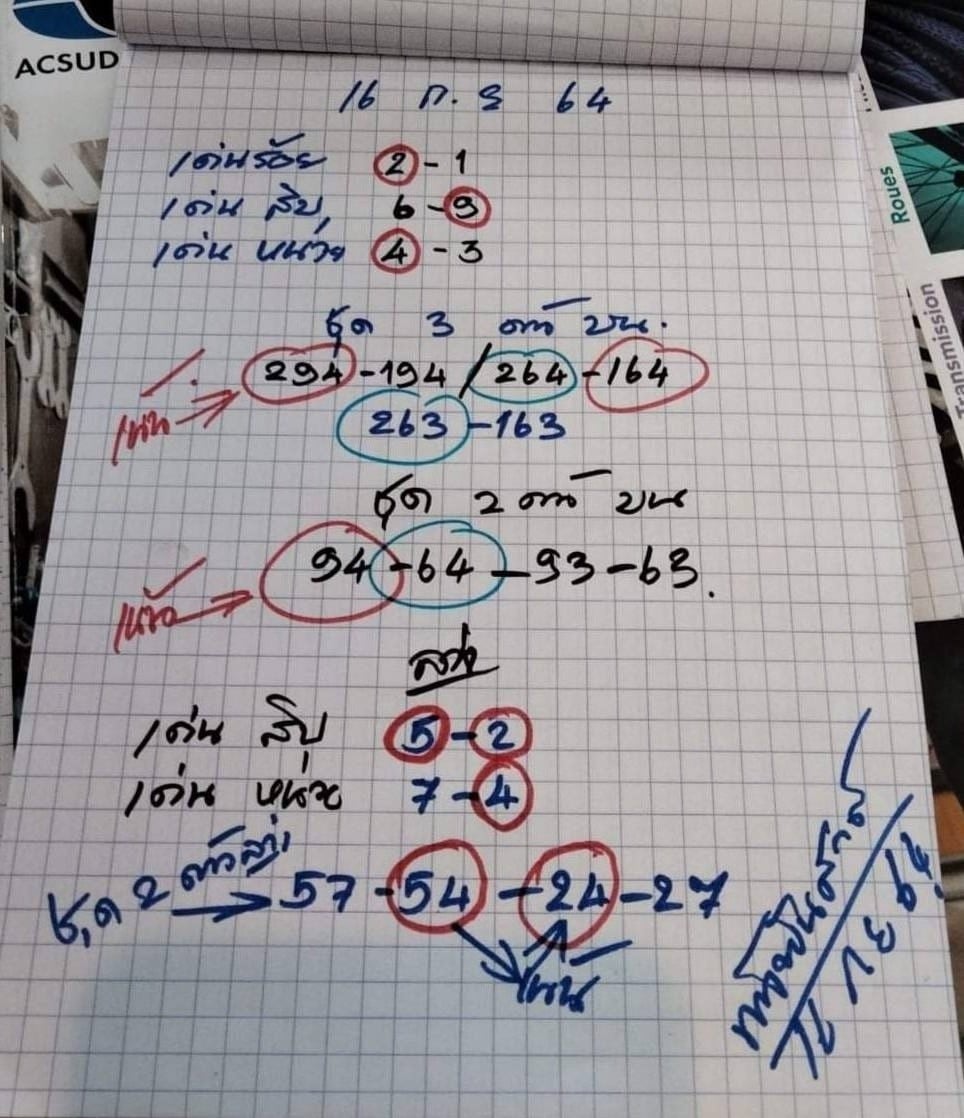 ACSUD
16 ก.ย 64
เด่นร้อย 2 - 1
เด่น สิบ 6 - 9
เด่น หน่วย 4 - 3
ชุด 3 ตัว บน.
294 - 194 / 264 - 164
เน้น
263 - 163
ชุด 2 ตัว บน
94 - 64 - 93 - 63.
ล่าง
เด่น สิบ 5 - 2
เด่น หน่วย 7 - 4
ชุด 2 ตัวล่าง 57 - 54 - 24 - 27
เน้น
ก.ย 64
Roues
Transmission